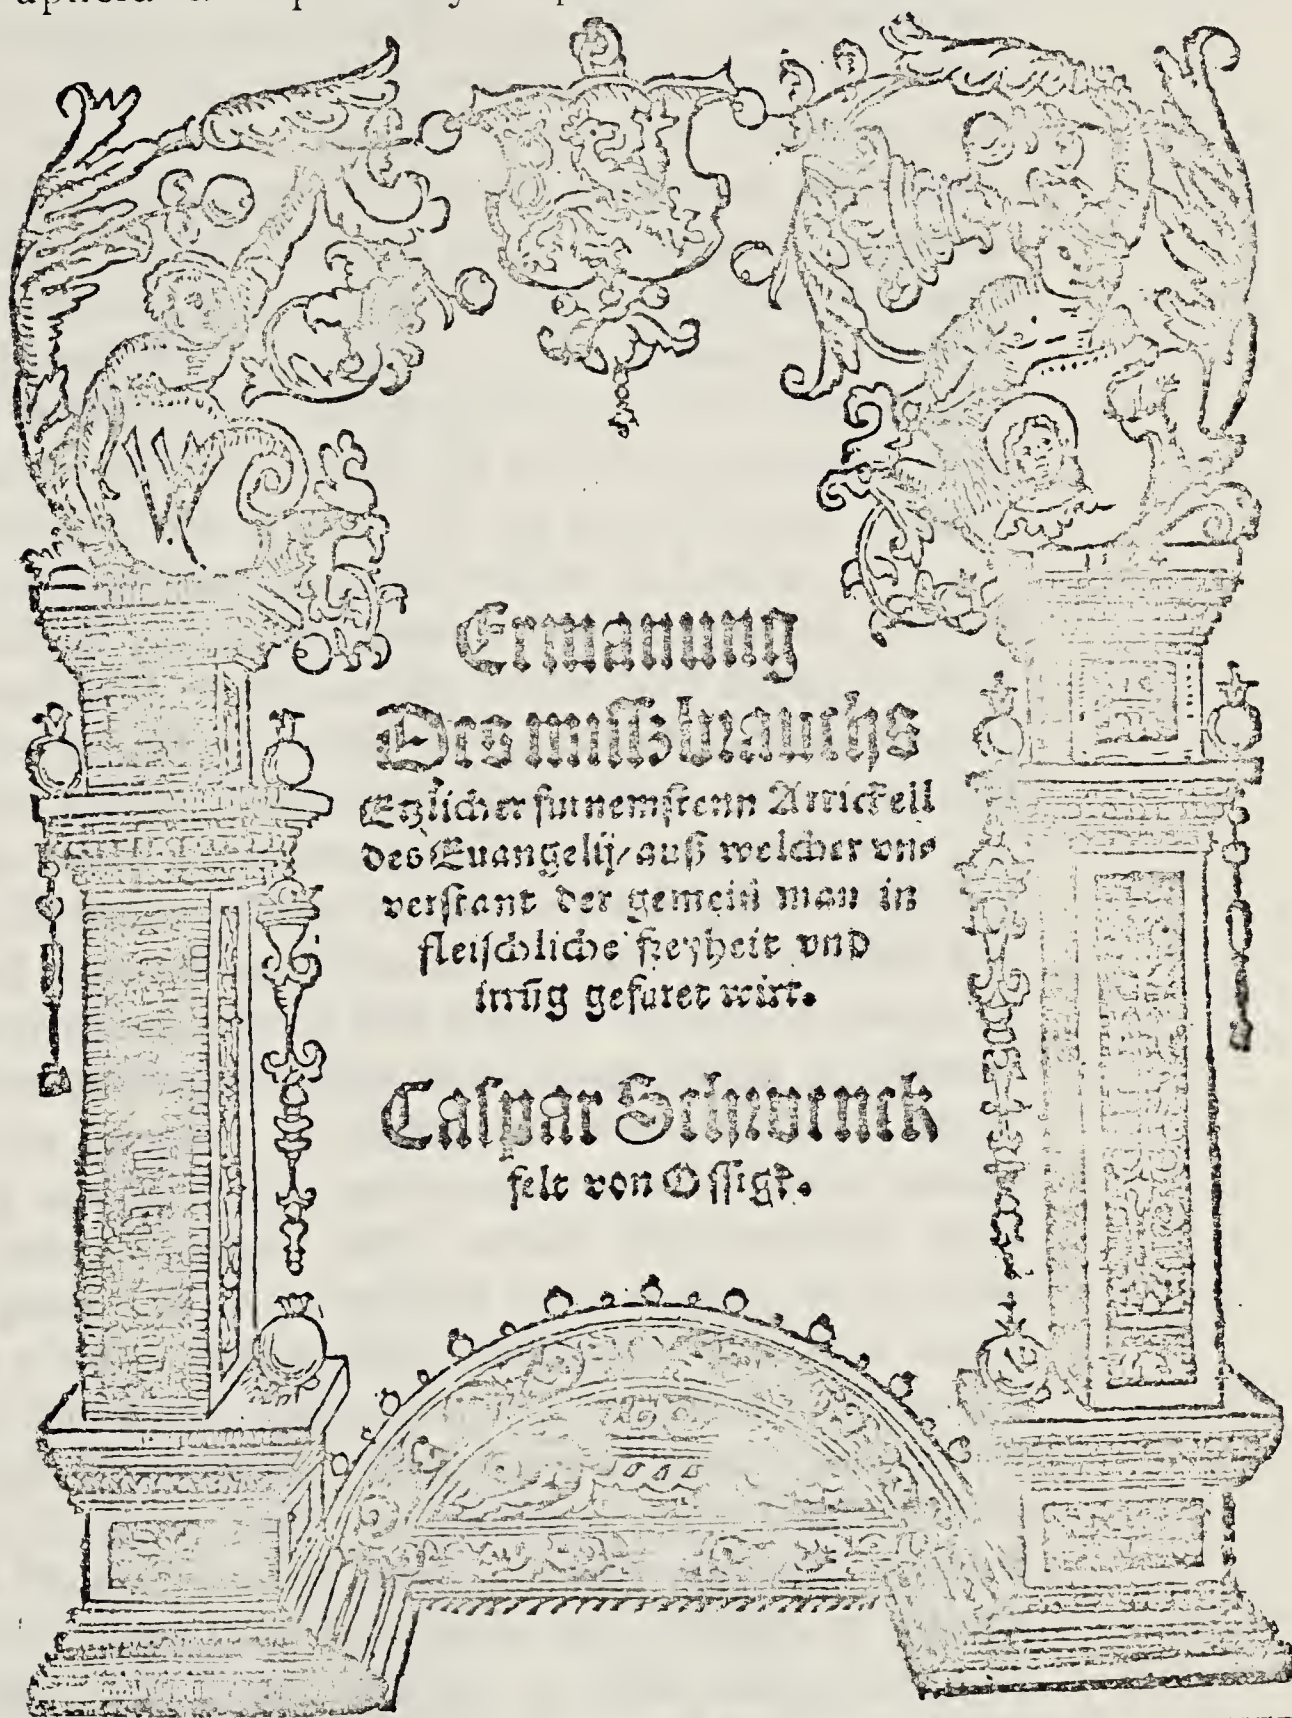 W
Ermanung
Des missbrauchs
Etzlicher furnemstenn Artickell
des Euangelij/ auß welcher vns
verstant der gemein man in
fleischliche freyheit vnd
irrūg gefuret wirt.
Caspar Schwenck
felt von Ossigk.